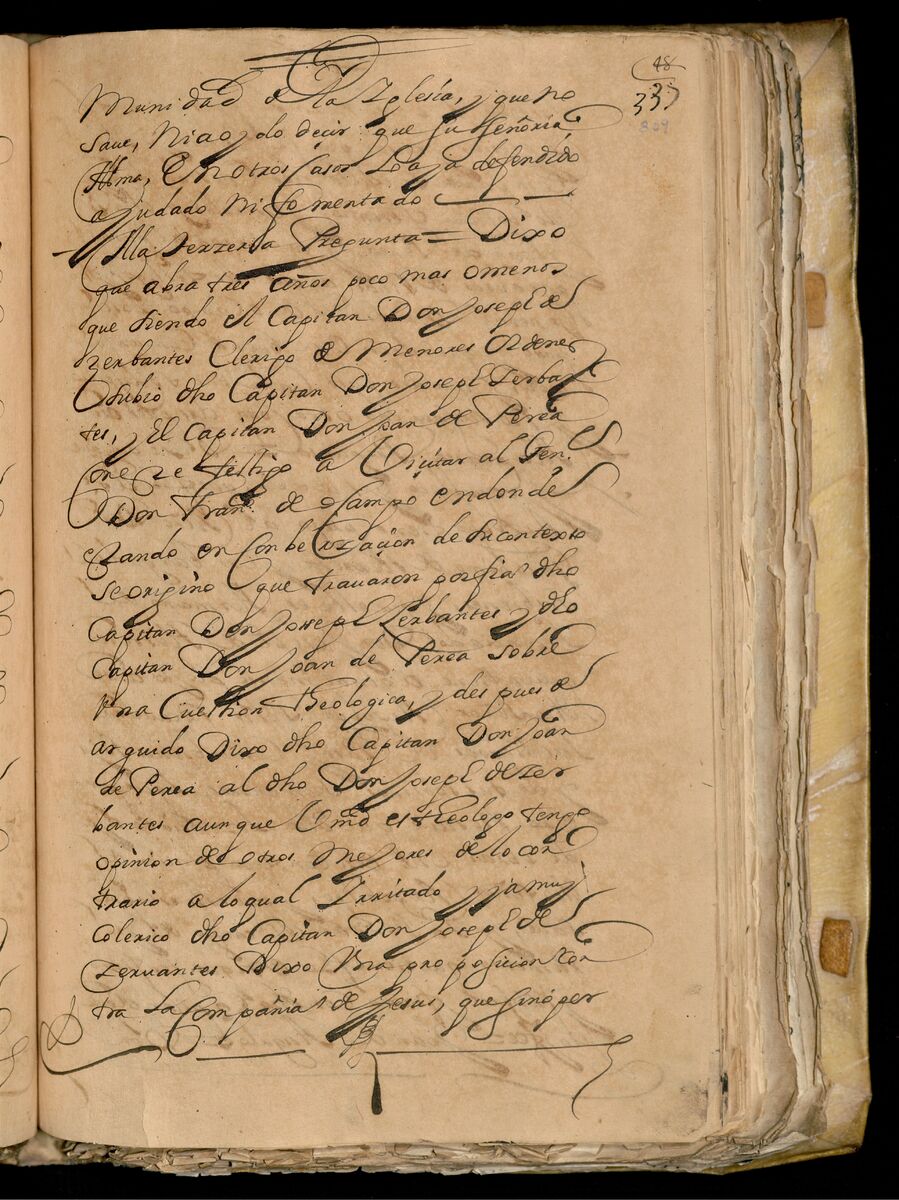 48
335
339
Munidad de la Iglesia, y que no
save, Ni a oydo decir que su señoria
Illma, En otros Casos lo aya defendido
ayudado Ni fomentado
A la terzera Pregunta = Dixo
que abra tres años poco mas o menos
que siendo el Capitan Don Joseph de
zerbantes Clerigo de Menores Ordenes
subio dho Capitan Don Joseph Zerban
tes, y El Capitan Don Joan de Perea
Con este testigo a Viçitar al Genl.
Don Franco. de ocampo en donde
estando en Conberzaçion de su contexto
se origino que travaron porfias dho
Capitan Don Joseph Zerbantes y dho
Capitan Don Joan de Perea sobre
Vna Cuestion theologica, y des pues de
arguido Dixo dho Capitan Don Joan
de Perea al dho Don Joseph de Zer
bantes aunque Vmd es theologo tengo
opinion de otros Mejores de lo con
trario a lo qual Irritado y ja muy
Colerico dho Capitan Don Joseph de
Zervantes Dixo Vna pro posicion con
tra La Compañia de Jesus, que sino per